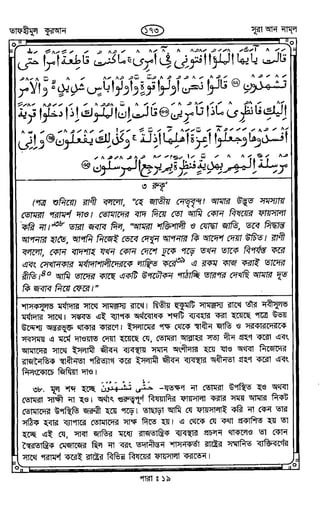 তাফহীমুল কুরআন
১৭৩
সূরা আন নামল
قَالَتْ يٰٓاَيُّهَا الْمَلَؤُا اَفْتُوْنِيْ فِيْٓ اَمْرِيْ ۚ مَا كُنْتُ قَاطِعَةً اَمْرًا حَتّٰى
تَشْهَدُوْنِ ۝ قَالُوْا نَحْنُ اُولُوْا قُوَّةٍ وَّاُولُوْا بَاْسٍ شَدِيْدٍ ۙ وَّالْاَمْرُ
اِلَيْكِ فَانْظُرِيْ مَاذَا تَاْمُرِيْنَ ۝ قَالَتْ اِنَّ الْمُلُوْكَ اِذَا دَخَلُوْا قَرْيَةً
اَفْسَدُوْهَا وَجَعَلُوْٓا اَعِزَّةَ اَهْلِهَآ اَذِلَّةً ۚ وَكَذٰلِكَ يَفْعَلُوْنَ ۝ وَاِنِّيْ
مُرْسِلَةٌ اِلَيْهِمْ بِهَدِيَّةٍ فَنٰظِرَةٌۢ بِمَ يَرْجِعُ الْمُرْسَلُوْنَ ۝
৩ রুকূ'
(পত্র শুনিয়ে) রাণী বললো, "হে জাতীয় নেতৃবৃন্দ! আমার উদ্ভূত সমস্যায়
তোমরা পরামর্শ দাও। তোমাদের বাদ দিয়ে তো আমি কোন বিষয়ের ফায়সালা
করি না।"৩৮ তারা জবাব দিল, "আমরা শক্তিশালী ও যোদ্ধা জাতি, তবে সিদ্ধান্ত
আপনার হাতে, আপনি নিজেই ভেবে দেখুন আপনার কি আদেশ দেয়া উচিত। রাণী
বললো, কোন বাদশাহ যখন কোন দেশে ঢুকে পড়ে তখন তাকে বিপর্যস্ত করে
এবং সেখানকার মর্যাদাশালীদেরকে লাঞ্ছিত করে৩৯ এ রকম কাজ করাই তাদের
রীতি।৪০ আমি তাদের কাছে একটি উপঢৌকন পাঠাচ্ছি তারপর দেখছি আমার দূত
কি জবাব নিয়ে ফেরে।"
শাসকসুলভ মর্যাদার সাথে সামঞ্জস্য রাখে। দ্বিতীয় হুকুমটি সামঞ্জস্য রাখে তাঁর নবীসুলভ
মর্যাদার সাথে। সম্ভবত এই ব্যাপক অর্থবোধক শব্দটি ব্যবহার করা হয়েছে পত্রে উভয়
উদ্দেশ্য অন্তরভুক্ত থাকার কারণে। ইসলামের পক্ষ থেকে স্বাধীন জাতি ও সরকারদেরকে
সবসময় এ মর্মে দাওয়াত দেয়া হয়েছে যে, তোমরা আল্লাহর সত্য দীন গ্রহণ করো এবং
আমাদের সাথে ইসলামী জীবন ব্যবস্থায় সমান অংশীদার হয়ে যাও অথবা নিজেদের
রাজনৈতিক স্বাধীনতা পরিত্যাগ করে ইসলামী জীবন ব্যবস্থার অধীনতা গ্রহণ করো এবং
নিঃসংকোচে জিযিয়া দাও।
৩৮. মূল শব্দ হচ্ছে حَتّٰى تَشْهَدُوْنِ -যতক্ষণ না তোমরা উপস্থিত হও অথবা
তোমরা সাক্ষী না হও। অর্থাৎ গুরুত্বপূর্ণ বিষয়াদির ফায়সালা করার সময় আমার নিকট
তোমাদের উপস্থিতি জরুরী হয়ে পড়ে। তাছাড়া আমি যে ফায়সালাই করি না কেন তার
সঠিক হবার ব্যাপারে তোমাদের সাক্ষ্য দিতে হয়। এ থেকে যে কথা প্রকাশিত হয় তা
হচ্ছে এই যে, সাবা জাতির মধ্যে রাজতান্ত্রিক ব্যবস্থার প্রচলন থাকলেও তা কোন
স্বৈরতান্ত্রিক মেজাজের ছিল না বরং তদানীন্তন শাসনকর্তা রাষ্ট্রের সমমর্যাদা ব্যক্তিবর্গের
সাথে পরামর্শ করেই রাষ্ট্রের বিভিন্ন বিষয়ের ফায়সালা করতেন।
পারা : ১৯